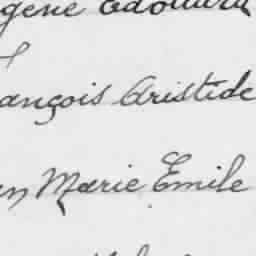 gène Edouard
ançois Aristide
en Marie Emile